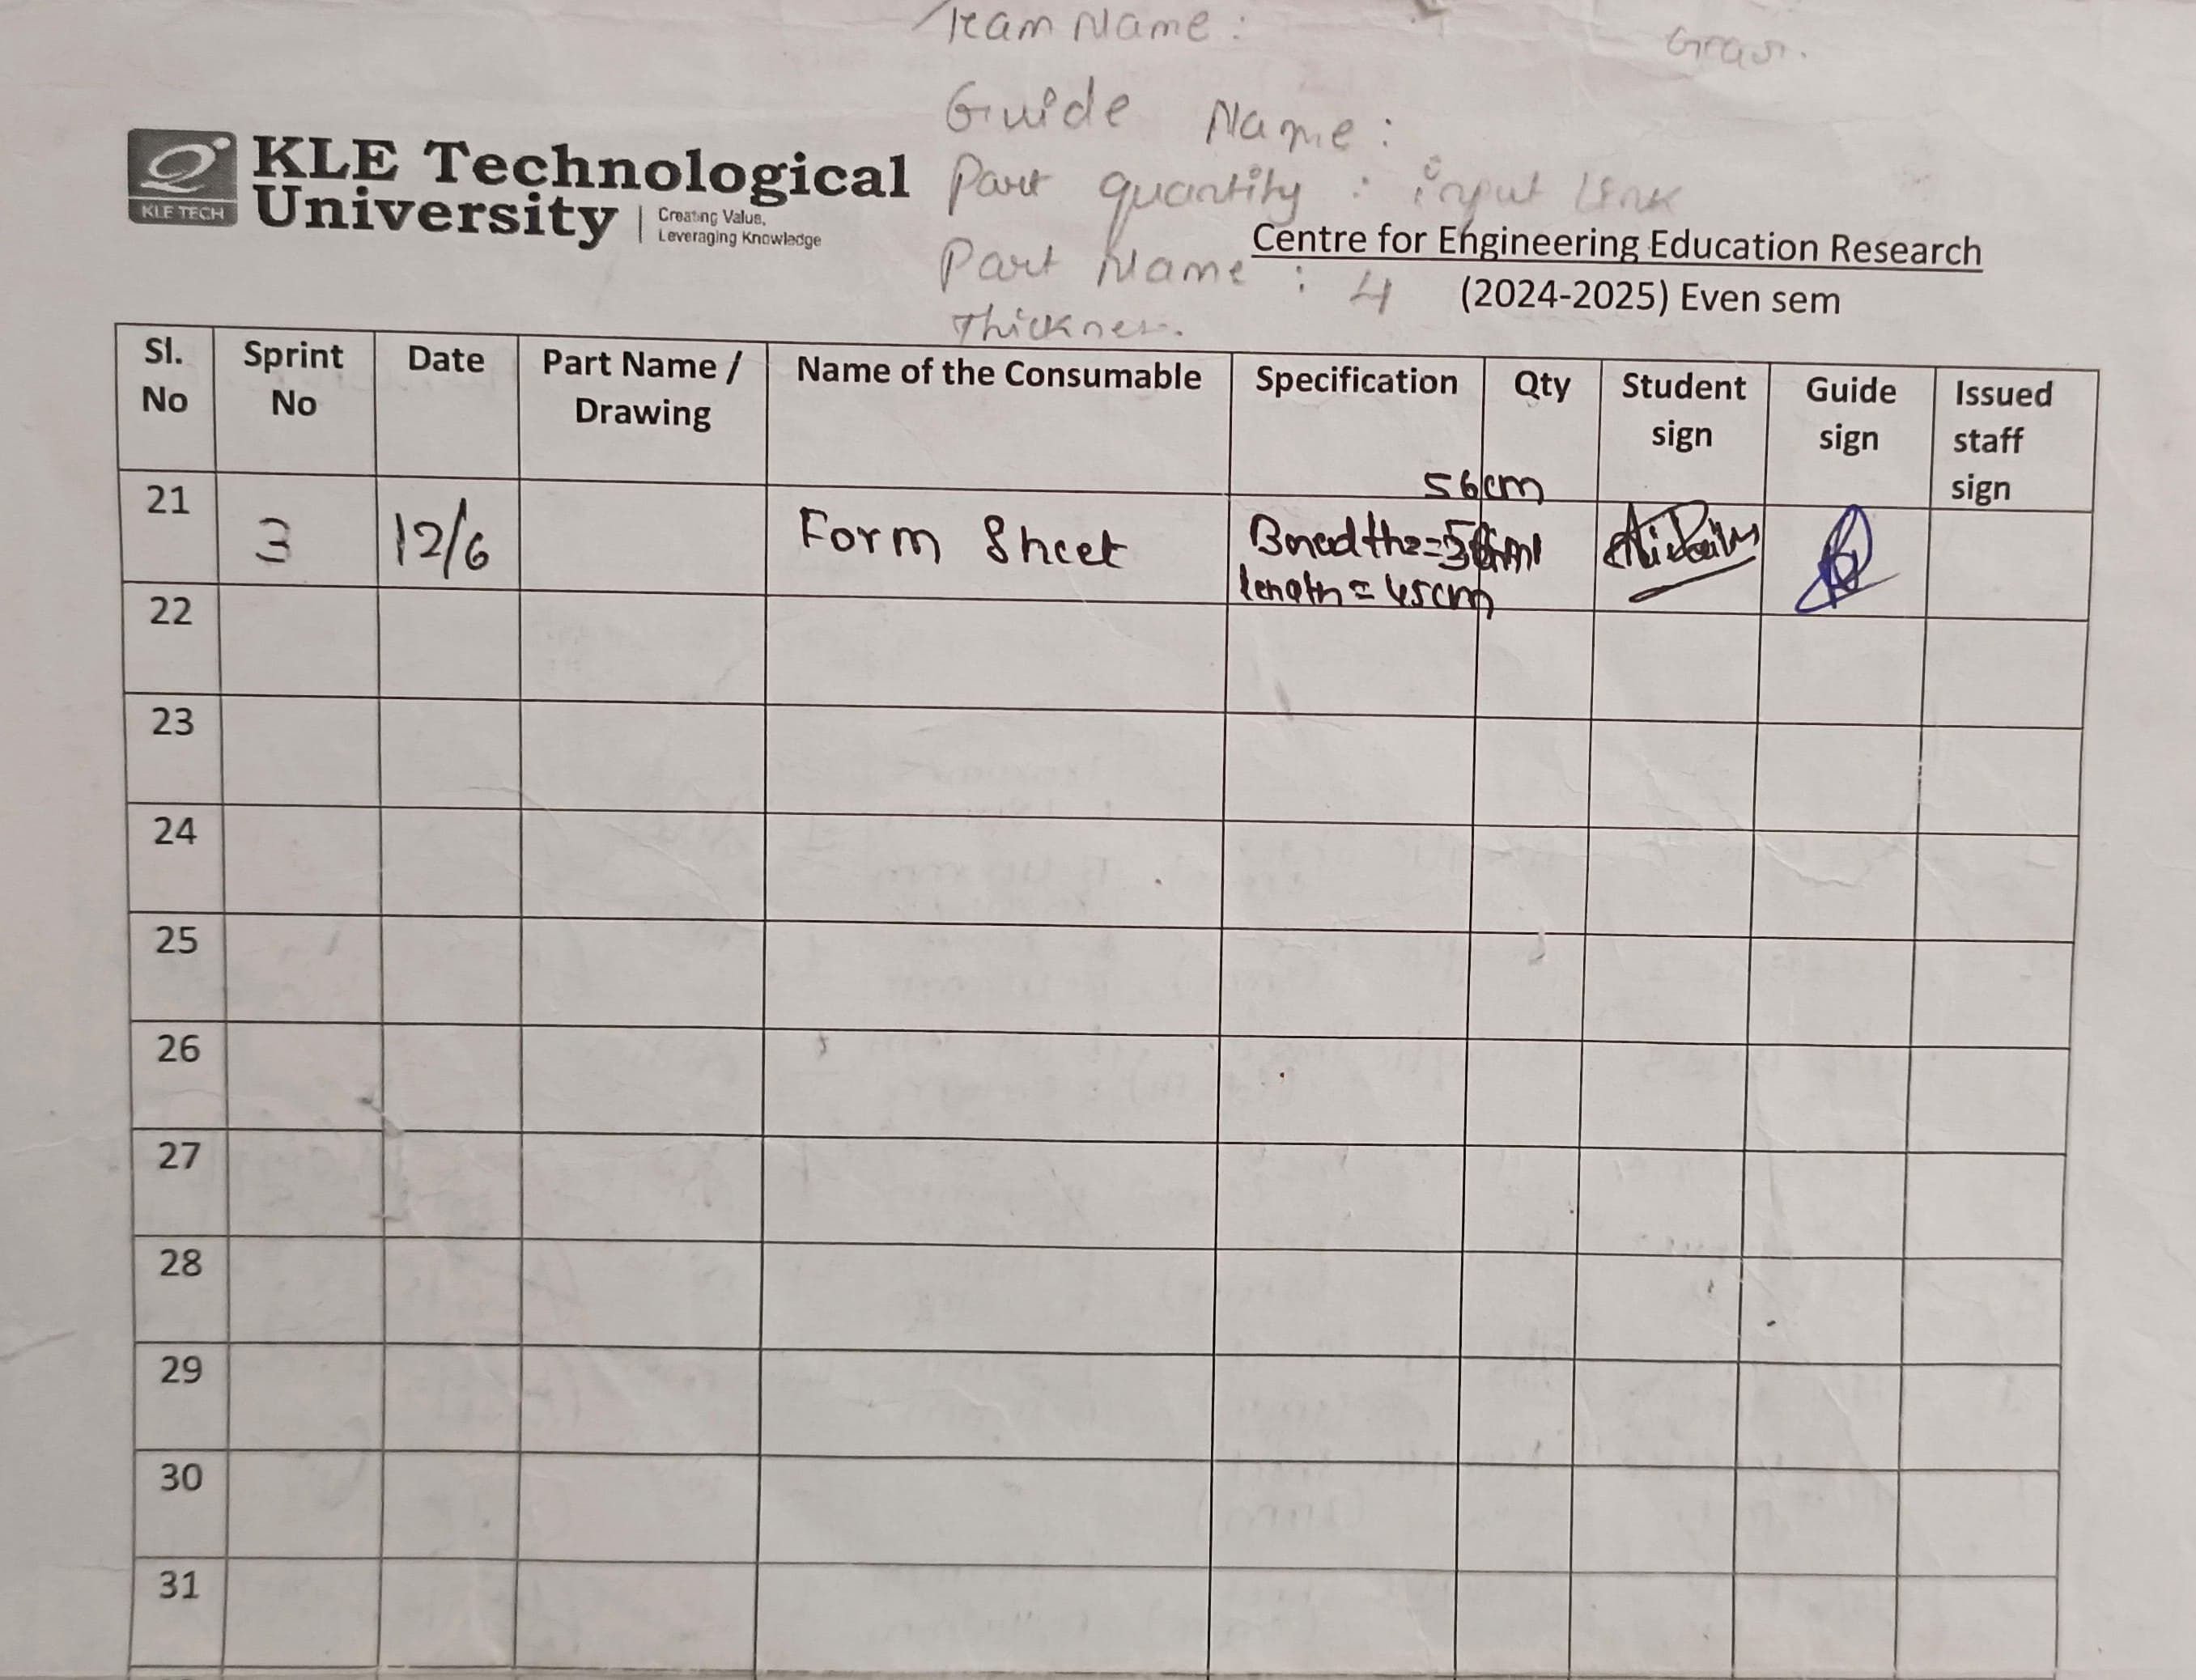 Team Name :
Guide Name :
Part quantity : input link
Part Name : 4
Thicknes.
KLE TECH
KLE Technological
University
Creating Value,
Leveraging Knowledge
Centre for Engineering Education Research
(2024-2025) Even sem
Sl. No Sprint No Date Part Name / Drawing Name of the Consumable Specification Qty Student sign Guide sign Issued staff sign
56cm
21 3 12/6 Form Sheet
length = 45cm
22
23
24
25
26
27
28
29
30
31